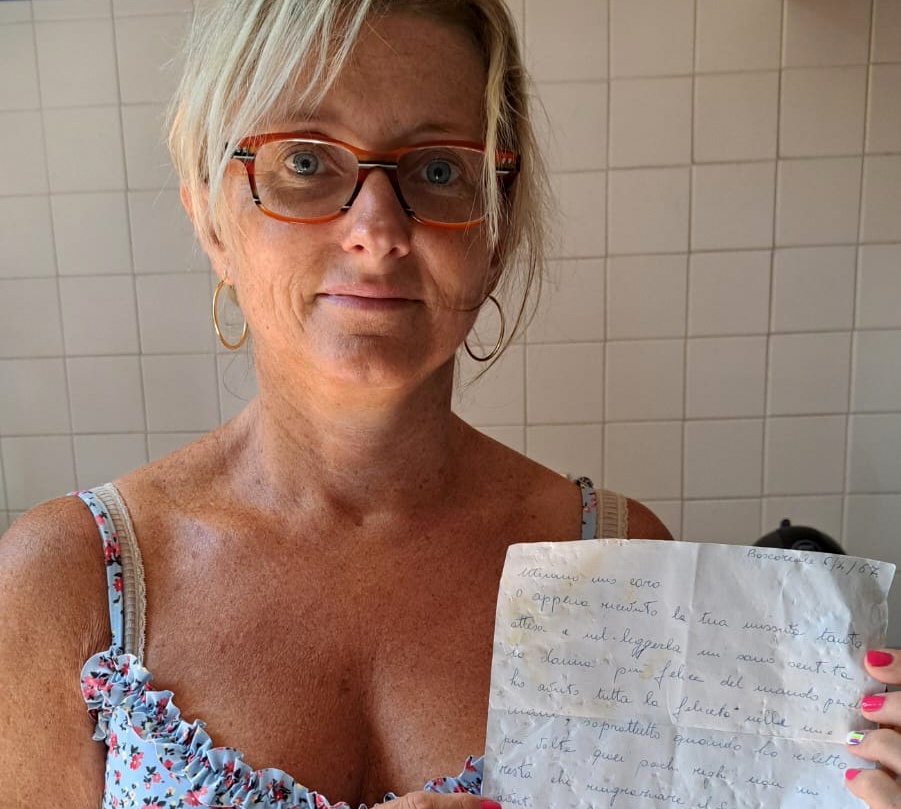 Boscoreale 6/4/67
mio caro
o appena ricevuto la tua missiva tanto
attesa e nel leggerla mi sono sentita
la donna più felice del mondo perché
ho avuto tutta la felicità nelle mie
mani, soprattutto quando ho riletto
più volte quei pochi righi non mi
resta che ringraziare